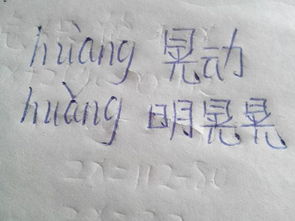 hùang 晃动
huǎng 明晃晃